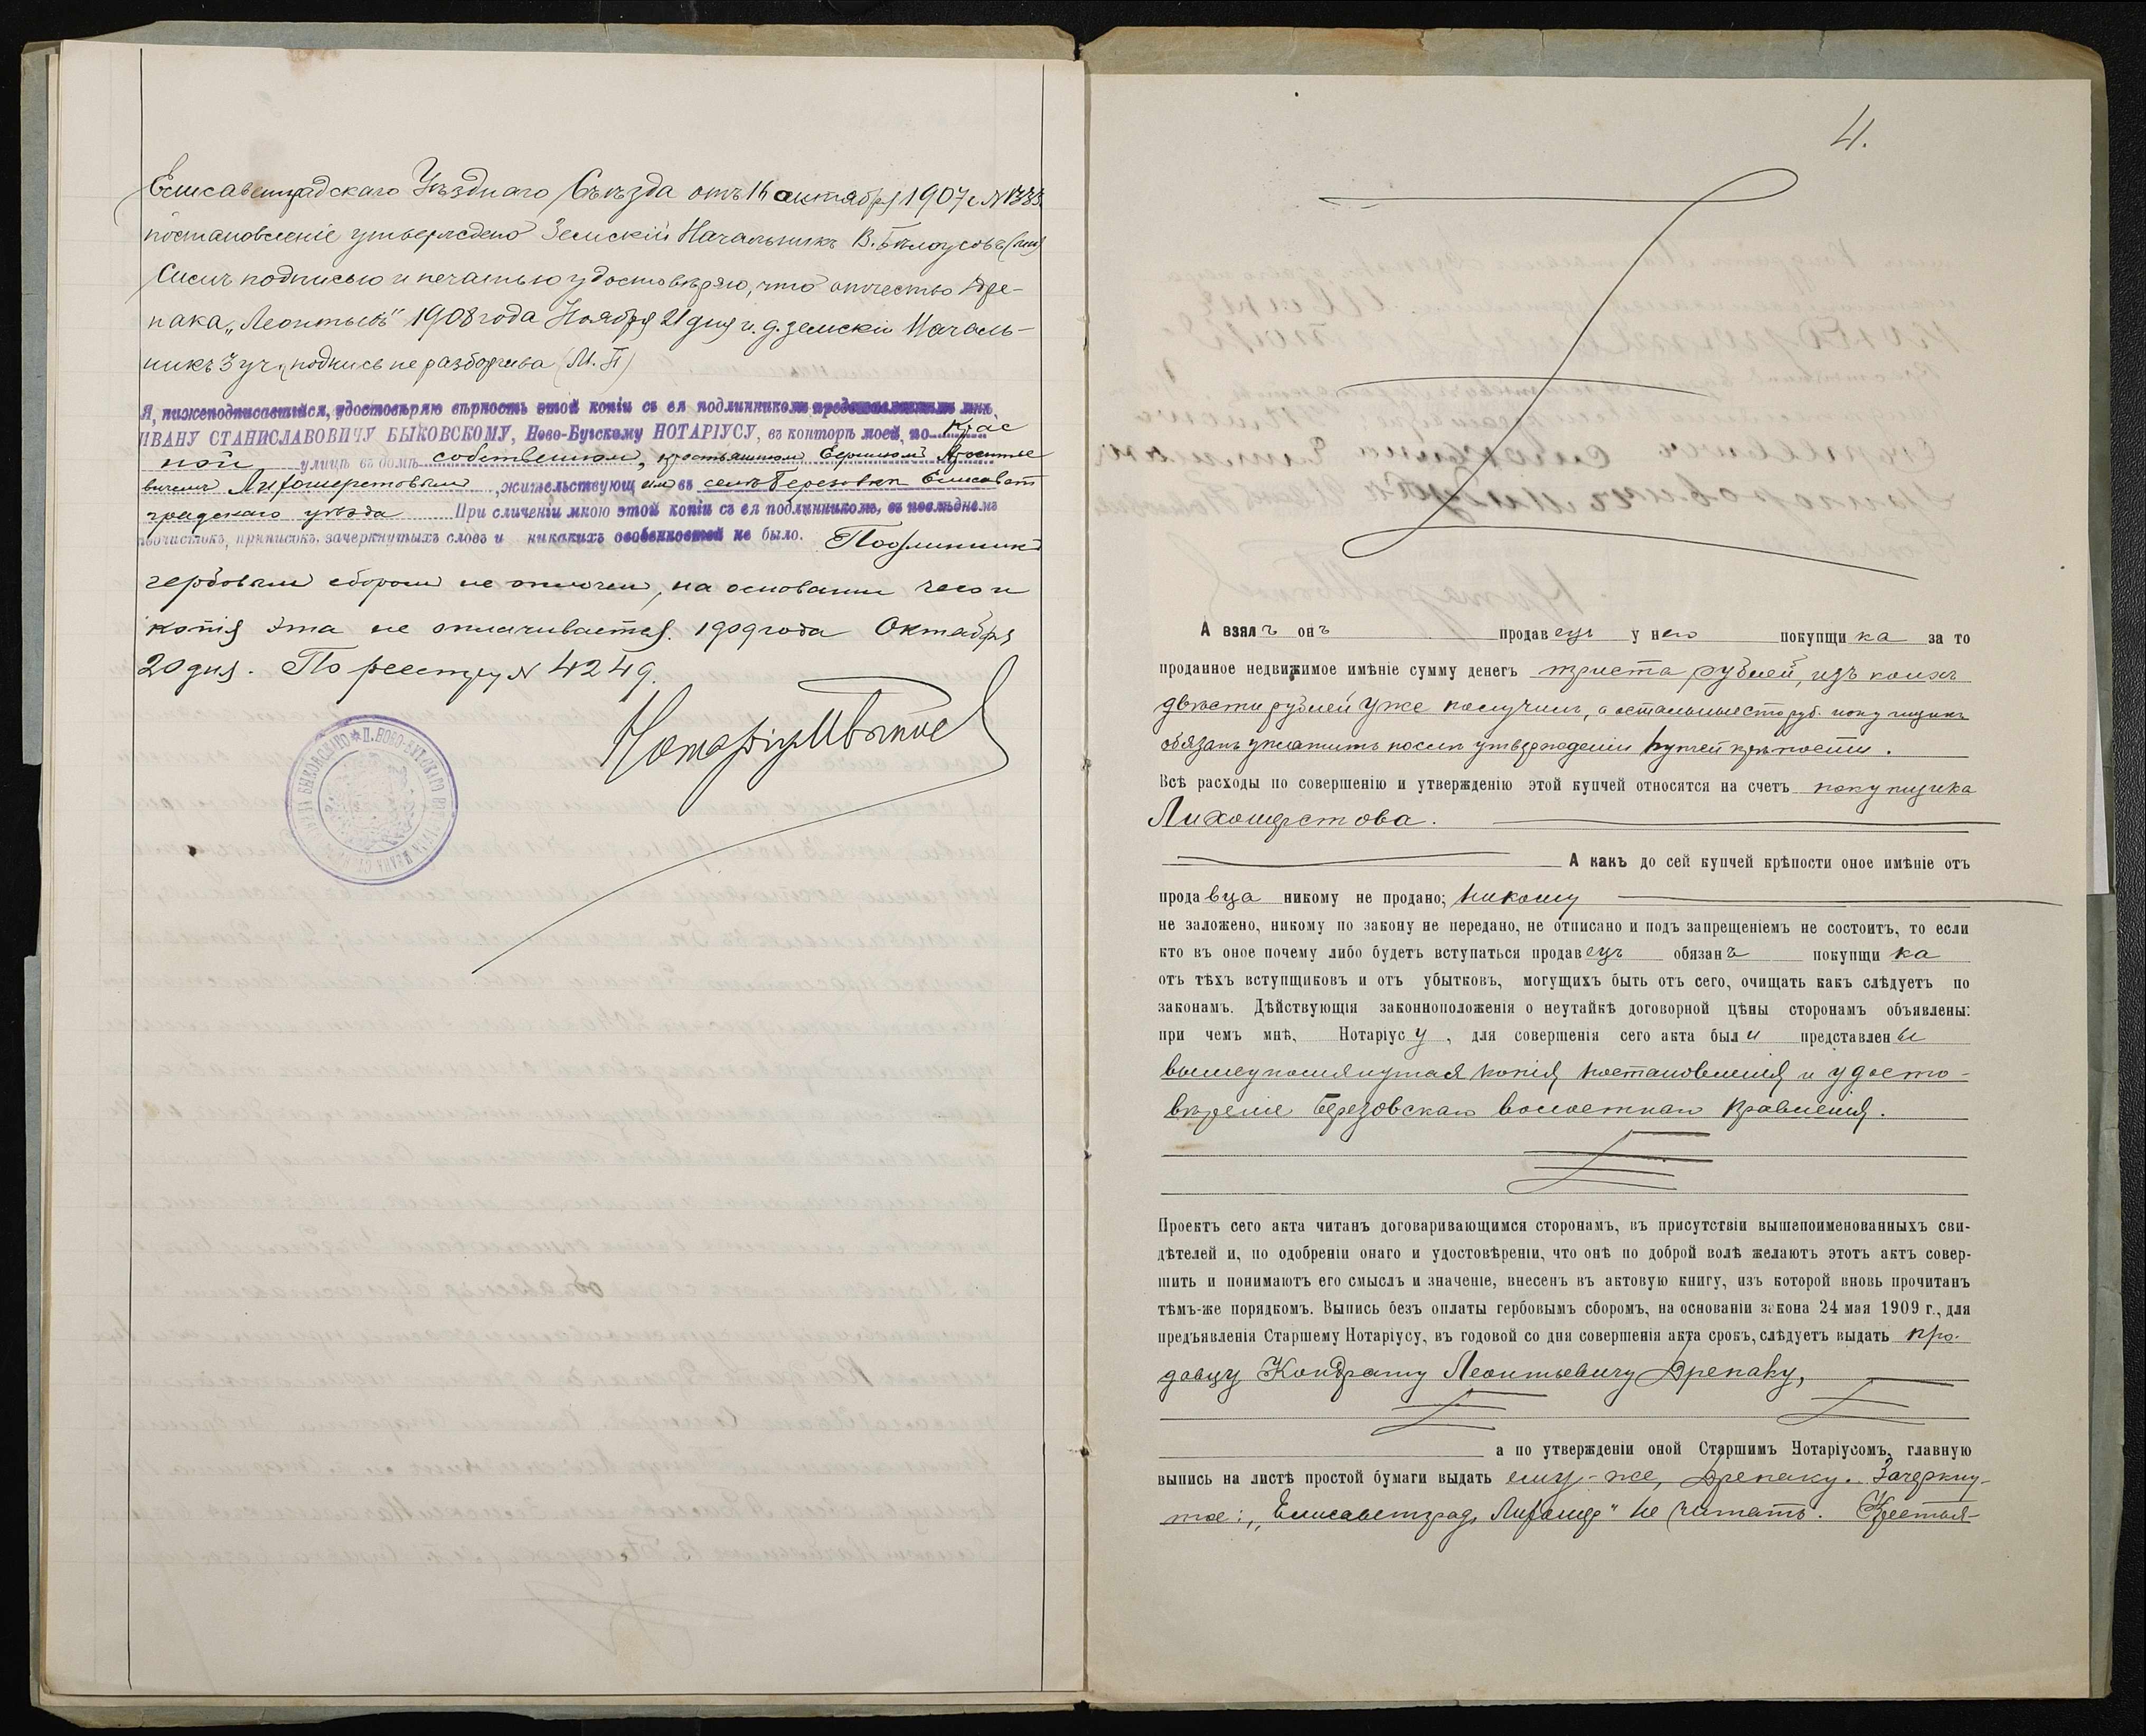 Елисаветградскаго Уѣзднаго Съѣзда отъ 16 октября 1907 г. №
постановленіе утверждено Земскій Начальникъ В. Бѣлоусовъ
Симъ подписью и печатью удостовѣряю, что отчество Дре-
пака „Леонтьевъ" 1908 года Ноября 21 дня и. д. земскій Началь-
никъ 3 уч. (подпись не разборчива (М. П)
Я, нижеподписавшійся, удостовѣряю вѣрность этой копіи съ ея подлинникомъ представленнымъ мнѣ,
ИВАНУ СТАНИСЛАВОВИЧУ БЫКОВСКОМУ, Ново-Бугскому НОТАРІУСУ, въ конторѣ моей, по Крас
ной улицѣ въ домѣ собственномъ, крестьяниномъ
вичемъ Лихошерстовымъ, жительствующимъ въ селѣ Березовкѣ Елисавет
градскаго уѣзда При сличеніи мною этой копіи съ ея подлинникомъ, въ послѣднемъ
почистокъ, приписокъ, зачеркнутыхъ словъ и никакихъ особенностей не было. Подлинникъ
гербовымъ сборомъ не оплоченъ, на основаніи чего и
копія эта не оплачивается. 1909 года Октября
20 дня. По реестру № 4249.
Нотаріусъ
4.
А взялъ онъ продавецъ у него покупщика за то
проданное недвижимое имѣніе сумму денегъ триста рублей, изъ коихъ
двѣсти рублей уже получилъ, а остальные сто руб. покупщикъ
обязанъ уплатить послѣ утвержденія купчей крѣпости.
Всѣ расходы по совершенію и утвержденію этой купчей относятся на счетъ покупщика
Лихошерстова.
А какъ до сей купчей крѣпости оное имѣніе отъ
продавца никому не продано; никому
не заложено, никому по закону не передано, не отписано и подъ запрещеніемъ не состоитъ, то если
кто въ оное почему либо будетъ вступаться продавецъ обязанъ покупщика
отъ тѣхъ вступщиковъ и отъ убытковъ, могущихъ быть отъ сего, очищать какъ слѣдуетъ по
законамъ. Дѣйствующія законноположенія о неутайкѣ договорной цѣны сторонамъ объявлены:
при чемъ мнѣ, Нотаріусу, для совершенія сего акта были представлены
вышеупомянутая копія постановленія и удосто-
вѣреніе Березовскаго волостнаго Правленія.
Проектъ сего акта читанъ договаривающимся сторонамъ, въ присутствіи вышепоименованныхъ сви-
дѣтелей и, по одобреніи онаго и удостовѣреніи, что онѣ по доброй волѣ желаютъ этотъ актъ совер-
шить и понимаютъ его смыслъ и значеніе, внесенъ въ актовую книгу, изъ которой вновь прочитанъ
тѣмъ-же порядкомъ. Выпись безъ оплаты гербовымъ сборомъ, на основаніи закона 24 мая 1909 г., для
предъявленія Старшему Нотаріусу, въ годовой со дня совершенія акта срокъ, слѣдуетъ выдать про-
давцу Кондрату Леонтьевичу Дрепаку,
а по утвержденіи оной Старшимъ Нотаріусомъ, главную
выпись на листѣ простой бумаги выдать ему-же, Дрепаку. Зачеркну-
тое: „Елисаветград, Лихошер" не читать. Крестья-